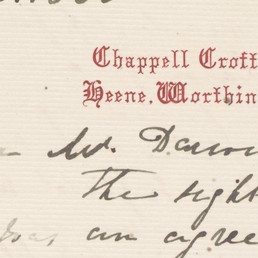 Chappell Croft
Heene. Worthin
Mr. Darw
The sight
an agree